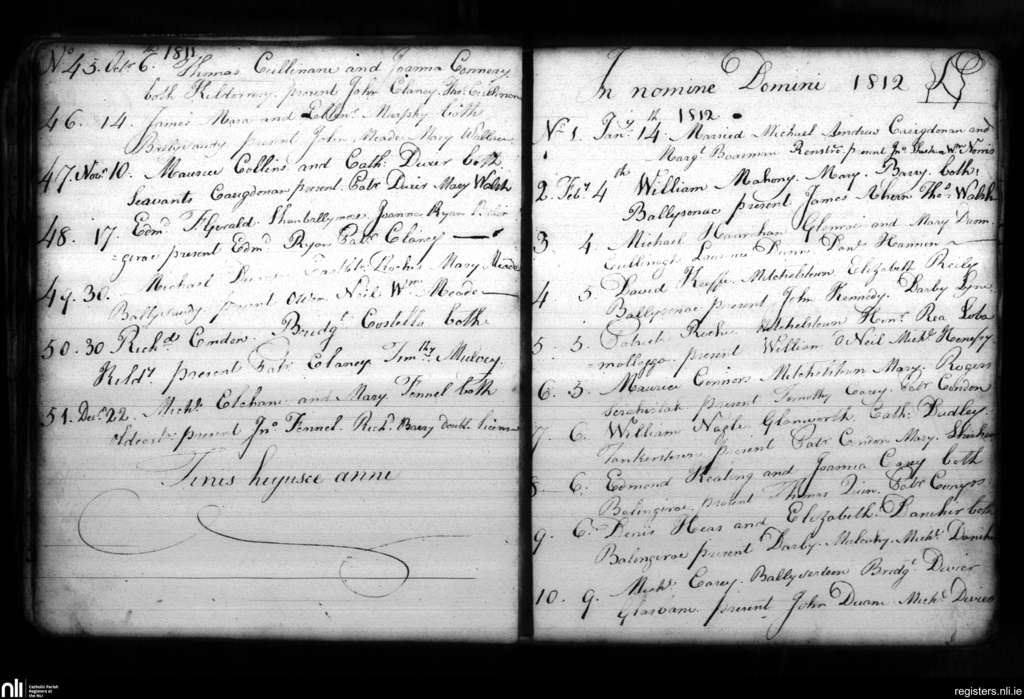 No 45. Octr 6. th 1811 Thomas Cullinane and Joanna Connery
both Kildorrery. present John Clancy Thos Cullinan
46. 14. James Mara and Ellenr both
present John Meade Mary Wallace
47. Novr 10. Maurice Collins and Cath: Dwier both
Servants Caregdonan present Patr Dwir Mary Walsh
48. 17. Edmd F. Gerald Shanballymore Joanna Ryan
gerae present Edmd Ryan Patr Clancy
49. 30. Michael Mary Meade
present Owen Neil Wm Meade
50. 30 Richd Condon. Bridgt Costello both
Kildy present Patr Clancy Timthy Mulvey.
51. Decr 22. Michl and Mary Fennel both
present Jno Fennel. Richd Barry double licence
Finis hujusce anni
In nomine Domini 1812
th 1812
No 1. Jany 14. Married Michael Andrew Caregdonan and
Margt Boarman present Jno Sheehan Wm Norris
2. Feby 4 th William Mahony. Mary. Barry. both
Ballysonae present James Ahern Thos Walsh
3. 4. Michael Hanrahan Glenroe and Mary
present Danl Hannon
4 5. David Keeffe. Mitchelstown Elizabeth Reily
Ballysonae present John Kennedy. Darby Lyne
5. 5. Patrick Mitchelstown Honr Rea Loba
mollogga present William O Neil Michl Henessy.
6. 5. Maurice Connors Mitchelstown Mary. Rogers
present Timothy Carey. Patr Condon
7. 6. William Nagle Glanworth Cath: Dudley.
Tankerstown present Patr Condon Mary. Sheehan
8 6. Edmond Keating and Joanna Carey both
Balengerae. present Thomas Quin. Patr Conyrs
9. 6. Denis Heas and Elizabeth. Danihir both
Balengerae present Darby. Michl Danihir
10. 9. Michl Carey. Ballyverteen Bridgt Divier
present. John Duane Michl Divier
nli Catholic Parish
Registers at
the NLI
registers.nli.ie